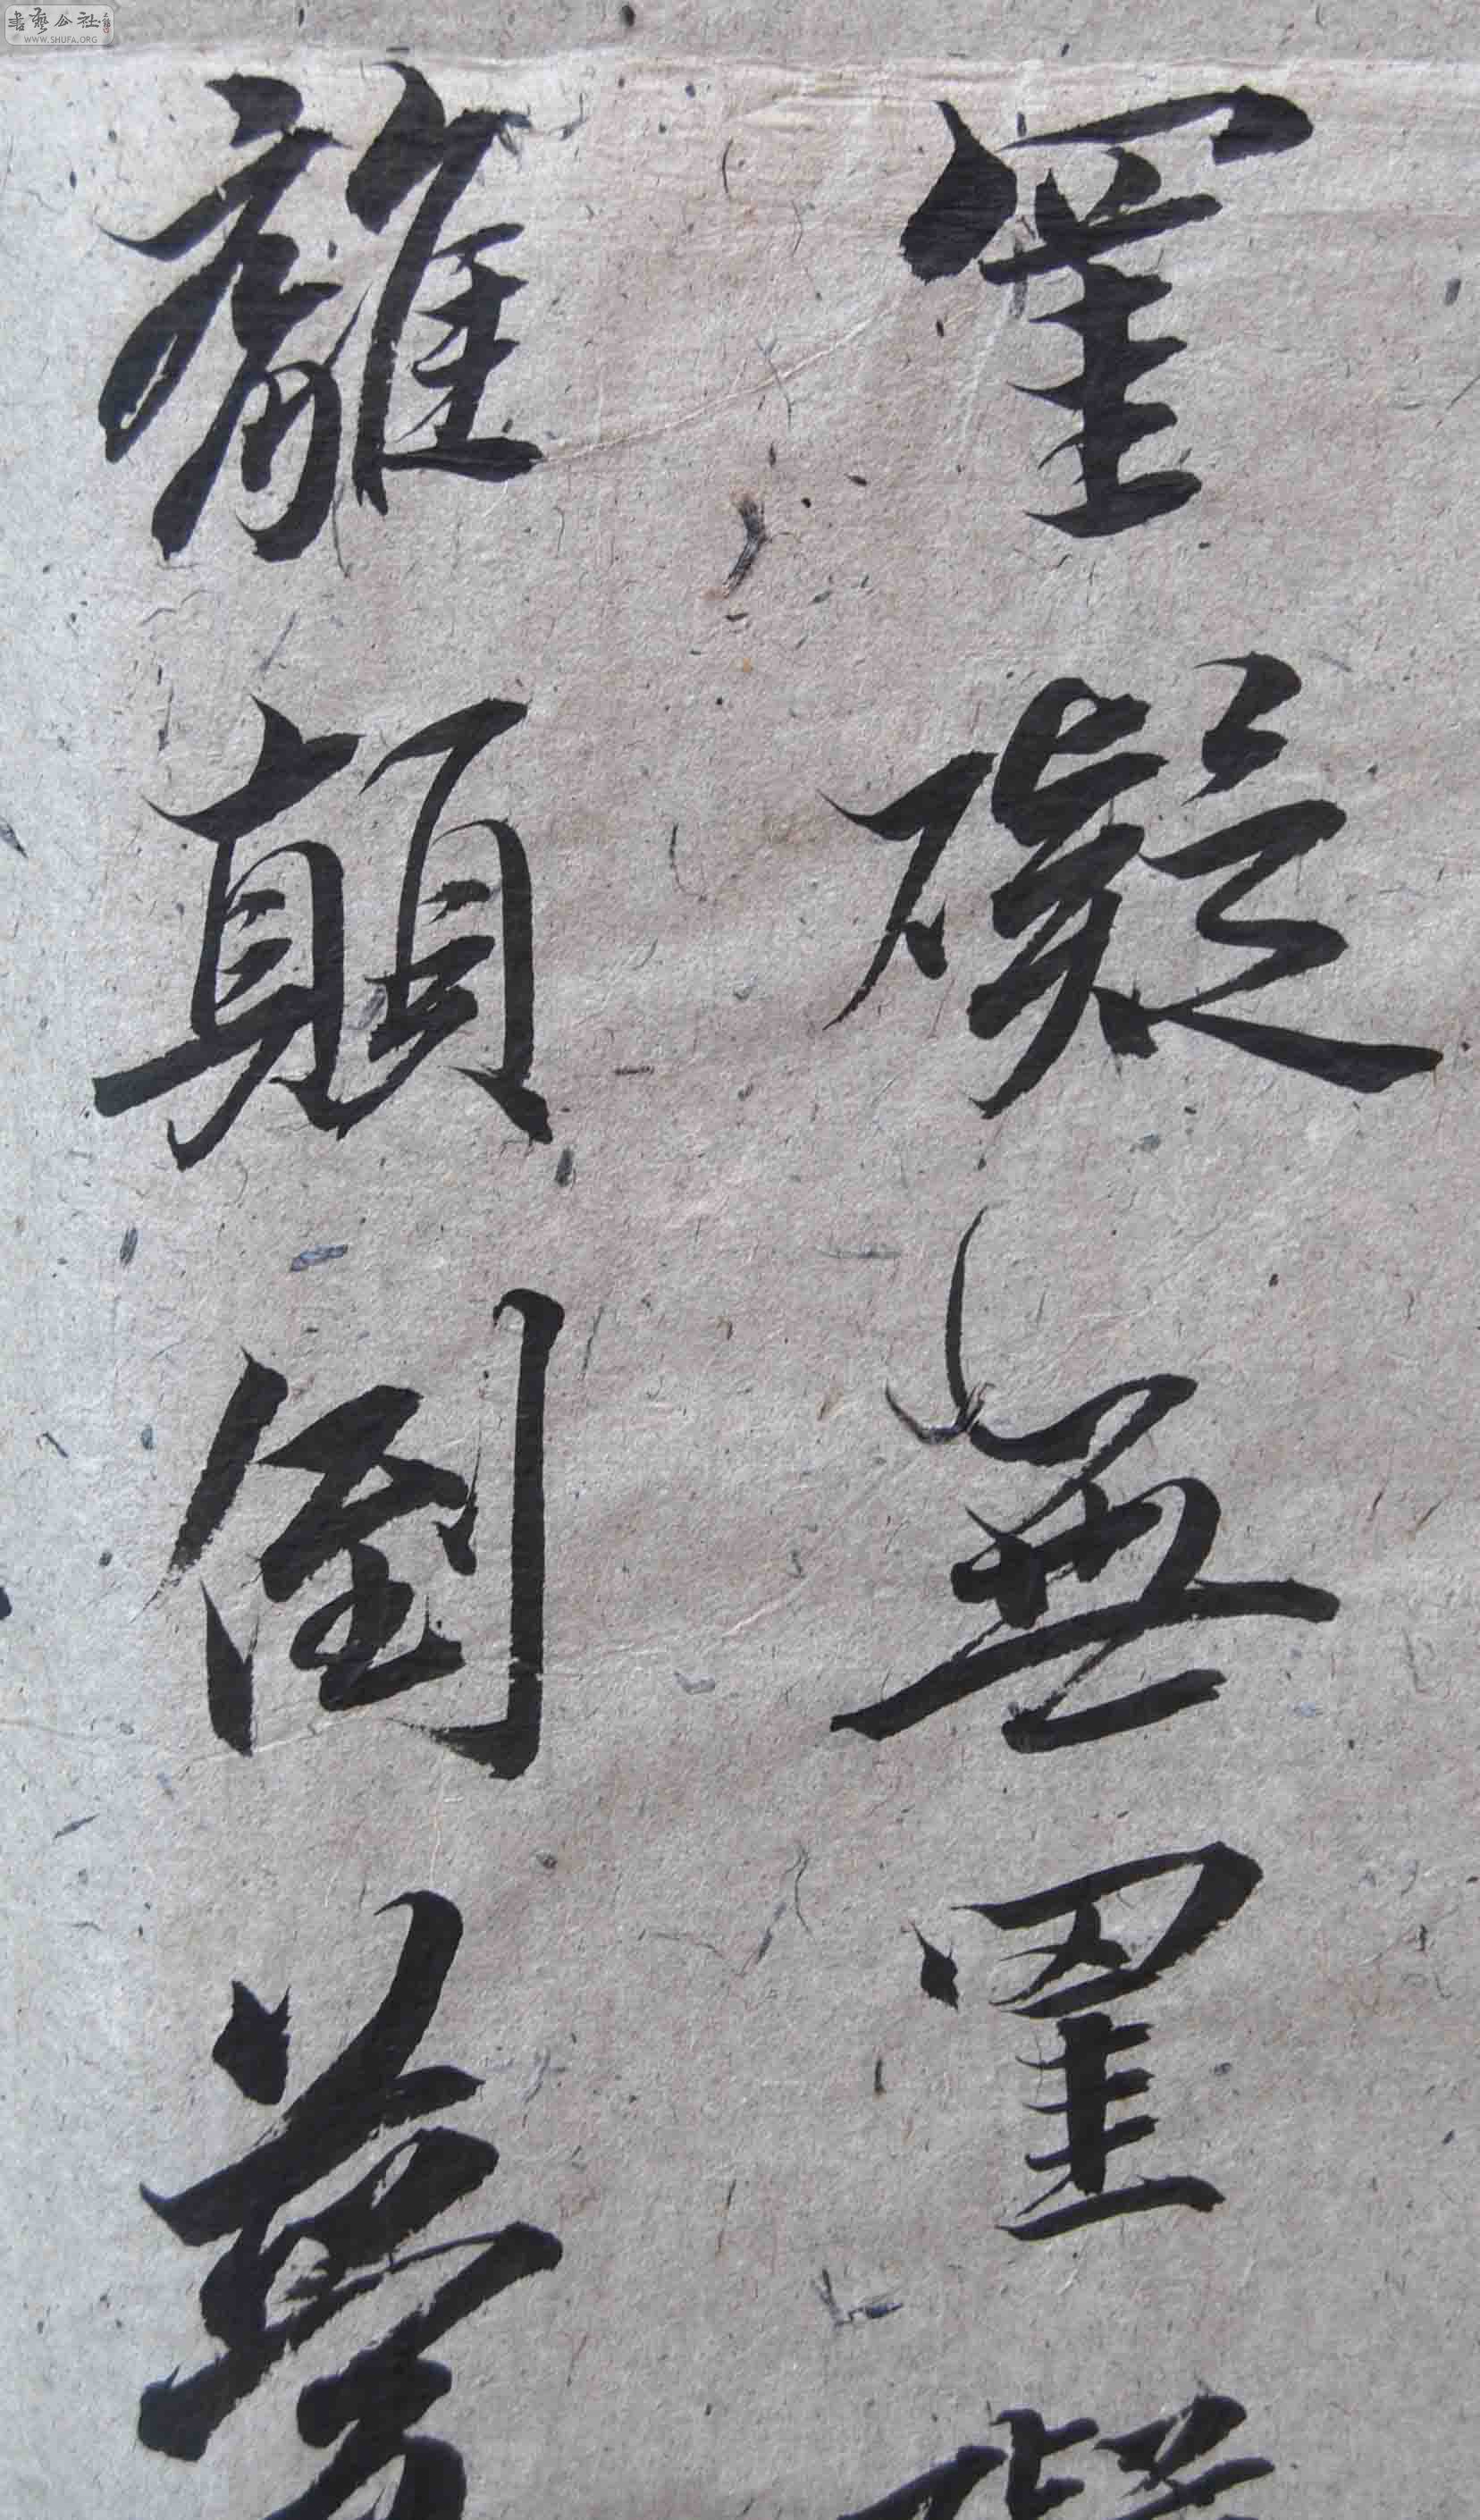 罣礙無罣礙
離顛倒夢
書藝公社
WWW.SHUFA.ORG